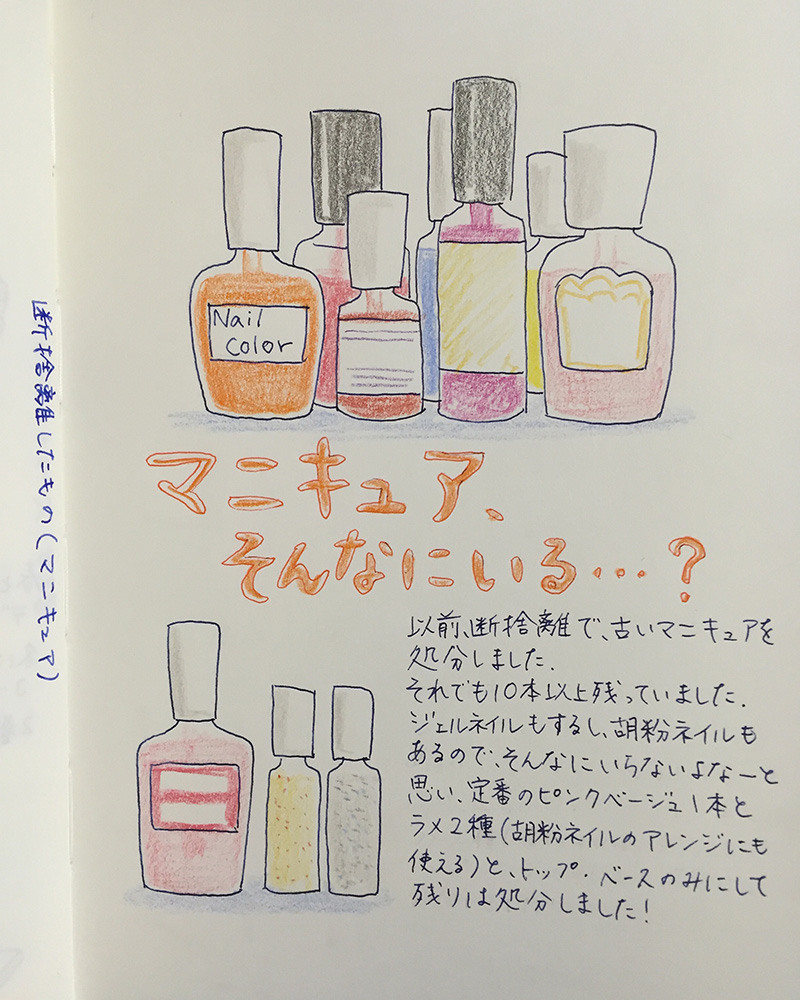 断捨離したもの(マニキュア)
Nail
color
マニキュア、
そんなにいる…?
以前、断捨離で、古いマニキュアを
処分しました.
それでも10本以上残っていました.
ジェルネイルもするし、胡粉ネイルも
あるので、そんなにいらないよなーと
思い、定番のピンクベージュ1本と
ラメ2種(胡粉ネイルのアレンジにも
使える)と、トップ・ベースのみにして
残りは処分しました!